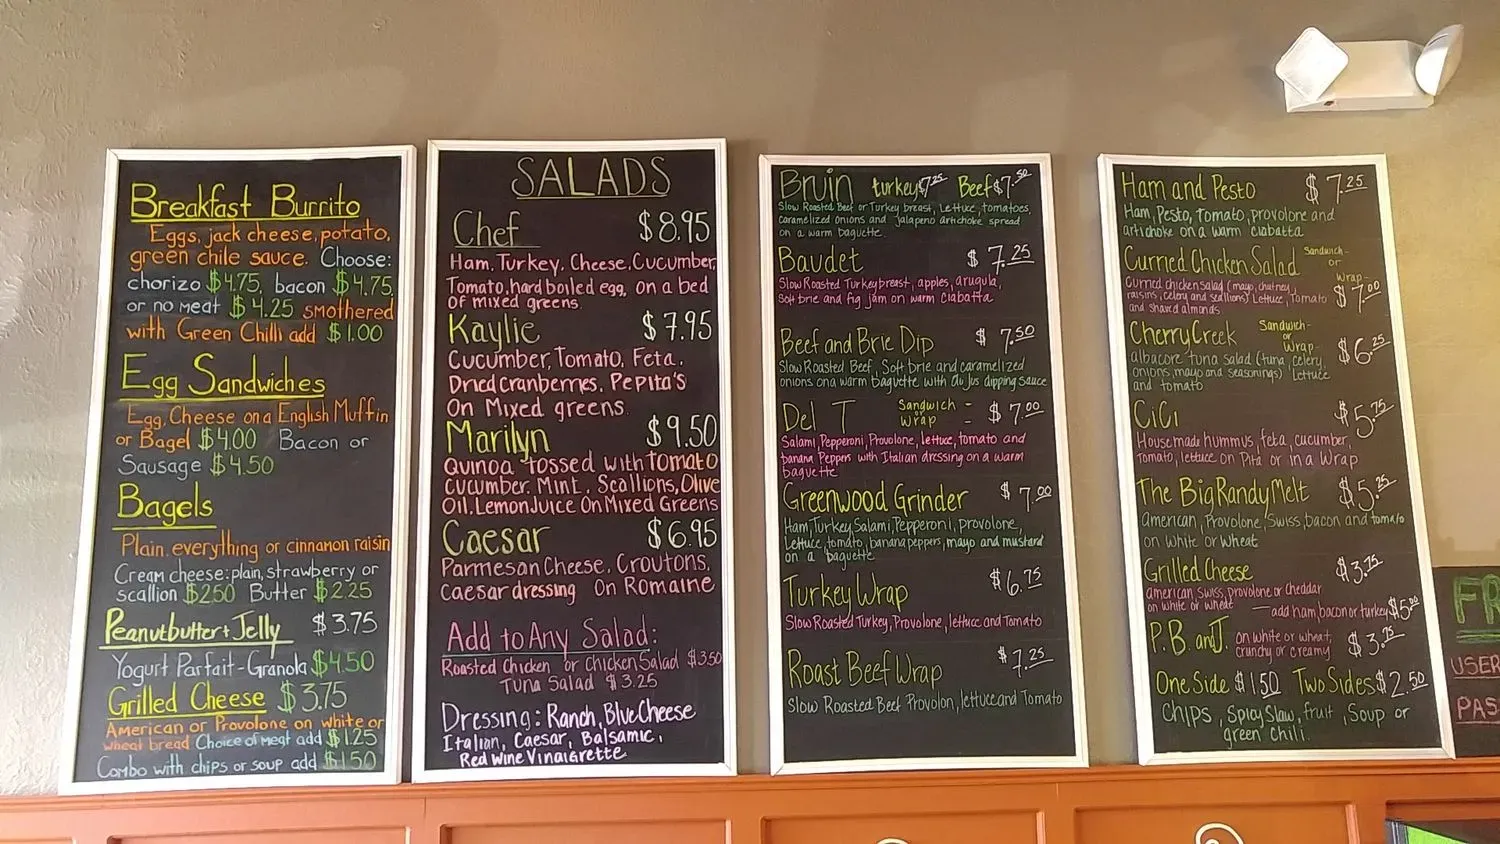 Breakfast Burrito
Eggs, jack cheese, potato,
green chile sauce. Choose:
chorizo $4.75, bacon $4.75,
or no meat $4.25 smothered
with Green Chilli add $1.00
Egg Sandwiches
Egg, Cheese on a English Muffin
or Bagel $4.00 Bacon or
Sausage $4.50
Bagels
Plain, everything or cinnamon raisin
Cream cheese: plain, strawberry or
scallion $2.50 Butter $2.25
Peanutbutter + Jelly $3.75
Yogurt Parfait - Granola $4.50
Grilled Cheese $3.75
American or Provolone on white or
wheat bread Choice of meat add $1.25
Combo with chips or soup add $1.50
SALADS
Chef $8.95
Ham, Turkey, Cheese, Cucumber,
Tomato, hard boiled egg, on a bed
of mixed greens
Kaylie $7.95
Cucumber, Tomato, Feta,
Dried cranberries, Pepita's
On Mixed greens
Marilyn $9.50
Quinoa tossed with Tomato
Cucumber, Mint, Scallions, Olive
Oil, Lemon Juice On Mixed Greens
Caesar $6.95
Parmesan Cheese, Croutons,
Caesar dressing On Romaine
Add to Any Salad:
Roasted Chicken or Chicken Salad $3.50
Tuna Salad $3.25
Dressing: Ranch, Blue Cheese
Italian, Caesar, Balsamic,
Red Wine Vinaigrette
Bruin turkey $7.25 Beef $7.50
Slow Roasted Beef or Turkey breast, Lettuce, tomatoes,
caramelized onions and Jalapeno artichoke spread
on a warm baguette
Baudet $7.25
Slow Roasted Turkey breast, apples, arugula,
Soft brie and fig jam on warm Ciabatta
Beef and Brie Dip $7.50
Slow Roasted Beef, Soft brie and caramelized
onions on a warm baguette with au jus dipping sauce
Del T Sandwich or Wrap - $7.00
Salami, Pepperoni, Provolone, lettuce, tomato and
banana Peppers with Italian dressing on a warm
baguette
Greenwood Grinder $7.00
Ham, Turkey, Salami, Pepperoni, provolone,
Lettuce, tomato, banana peppers, mayo and mustard
on a baguette
Turkey Wrap $6.75
Slow Roasted Turkey, Provolone, lettuce and Tomato
Roast Beef Wrap $7.25
Slow Roasted Beef Provolon, lettuce and Tomato
Ham and Pesto $7.25
Ham, Pesto, Tomato, provolone and
artichoke on a warm ciabatta
Curried Chicken Salad Sandwich- or Wrap- $7.00
Curried chicken salad (mayo, chutney,
raisins, celery and scallions) Lettuce, Tomato
and shaved almonds
Cherry Creek Sandwich- or Wrap- $6.25
albacore tuna salad (tuna, celery,
onions, mayo and seasonings) Lettuce
and tomato
CiCi $5.75
Housemade hummus, feta, cucumber,
Tomato, lettuce on Pita or in a Wrap
The Big Randy Melt $5.25
American, Provolone, Swiss, bacon and tomato
on white or wheat
Grilled Cheese $3.75
american, Swiss, provolone or cheddar
on white or wheat — add ham, bacon or turkey $5.00
P.B. and J. on white or wheat, $3.75
crunchy or creamy
One Side $1.50 Two Sides $2.50
Chips, Spicy Slaw, fruit, Soup or
green chili.
FR
USER
PAS